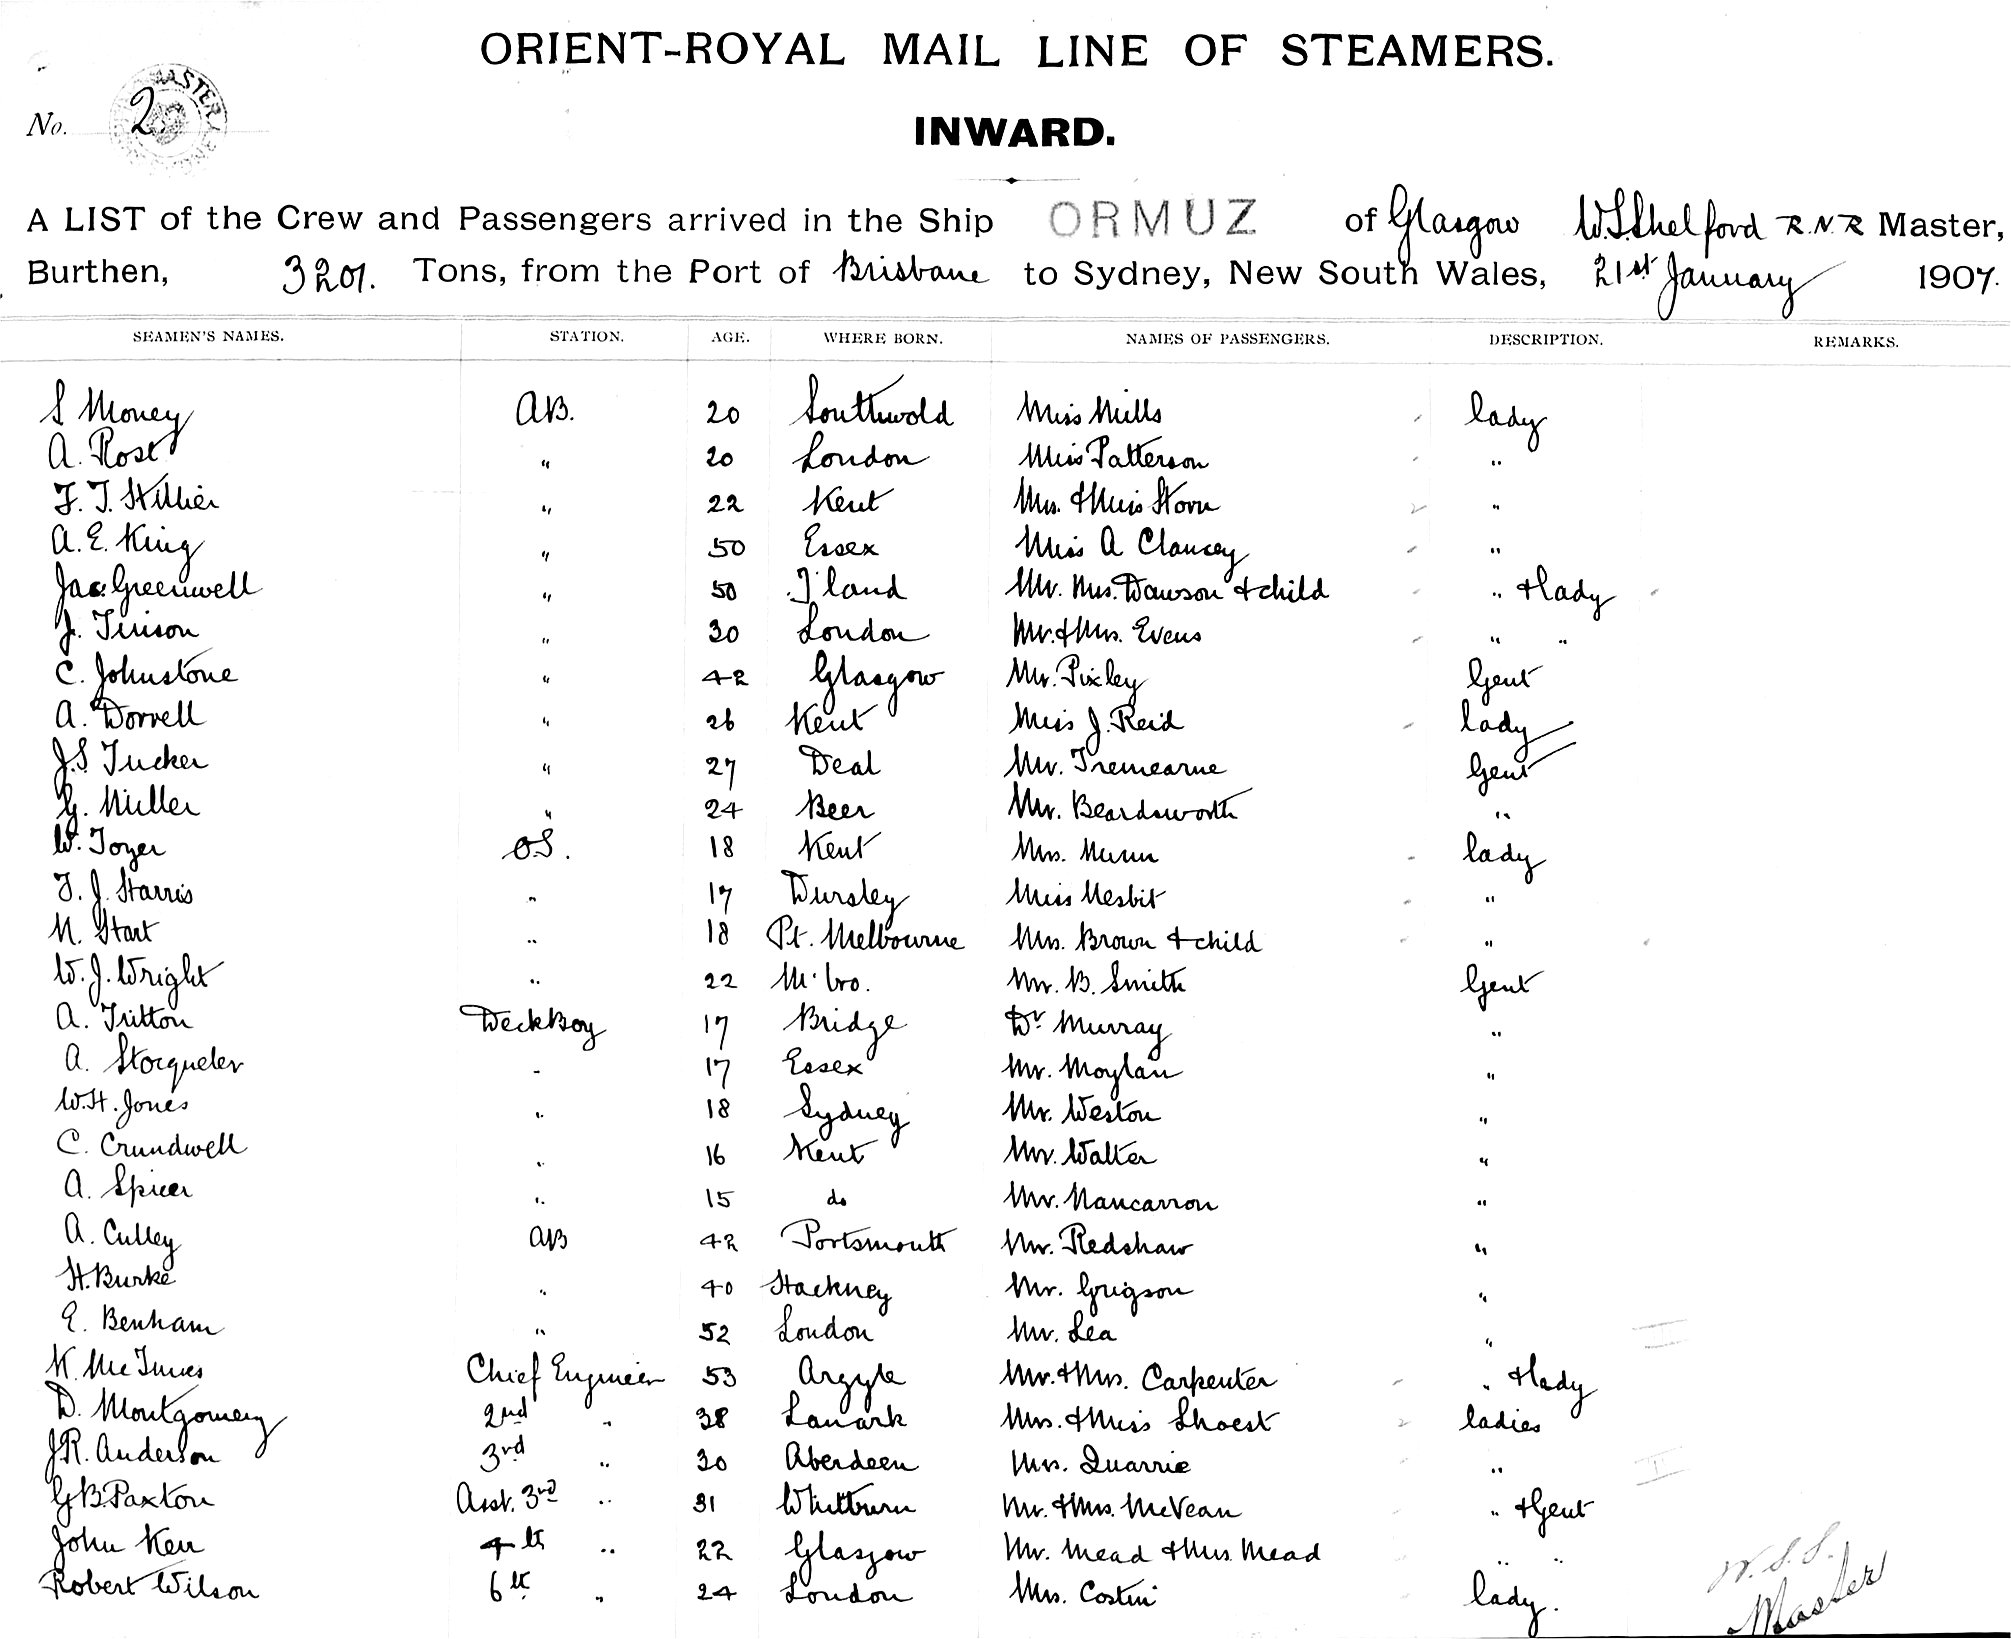 ORIENT-ROYAL MAIL LINE OF STEAMERS.
No. 2
INWARD.
A LIST of the Crew and Passengers arrived in the Ship ORMUZ of Glasgow W.S. Shelford R.N.R Master,
Burthen, 3201. Tons, from the Port of Brisbane to Sydney, New South Wales, 21st January 1907.
SEAMEN'S NAMES. STATION. AGE. WHERE BORN. NAMES OF PASSENGERS. DESCRIPTION. REMARKS.
S Money AB. 20 Southwold Miss Mills lady
A. Rose " 20 London Miss Patterson "
F. T. Hillier " 22 Kent Mrs. & Miss Horn "
A. E. King " 50 Essex Miss A Clancey "
Jas. Greenwell " 50 I'land Mr. Mrs. Dawson & child " & lady
J. Tinson " 30 London Mr. & Mrs. Evens " "
C. Johnstone " 42 Glasgow Mr. Pixley Gent
A. Dorrell " 26 Kent Miss J. Reid lady
J.S. Tucker " 27 Deal Mr. Tremearne Gent
G. Miller " 24 Beer Mr. Beardsworth "
W. Toyer O.S. 18 Kent Mrs. Munn lady
F. J. Harris " 17 Dursley Miss Nesbit "
N. Start " 18 Pt. Melbourne Mrs. Brown & child "
W. J. Wright " 22 M'bro. Mr. B. Smith Gent
A. Tritton Deck Boy 17 Bridge Dr Murray "
A. Storqueler " 17 Essex Mr. Moylan "
W.H. Jones " 18 Sydney Mr. Weston "
C. Crundwell " 16 Kent Mr. Walter "
A. Spicer " 15 do Mr. Nancarron "
A. Culley AB 42 Portsmouth Mr. Redshaw "
H. Burke " 40 Hackney Mr. Grigson "
E. Benham " 52 London Mr. Lea "
N. McInnes Chief Engineer 53 Argyle Mr. & Mrs. Carpenter " & lady
D. Montgomery 2nd " 38 Lanark Mrs. & Miss Shoest ladies
J.R. Anderson 3rd " 30 Aberdeen Mrs. Quarrie "
G B Paxton Asst. 3rd " 31 Whitburn Mr. & Mrs. McVean " & Gent
John Kerr 4th " 22 Glasgow Mr. Mead & Mrs. Mead " "
Robert Wilson 6th " 24 London Mrs. Costin lady.
W. S. S.
Master